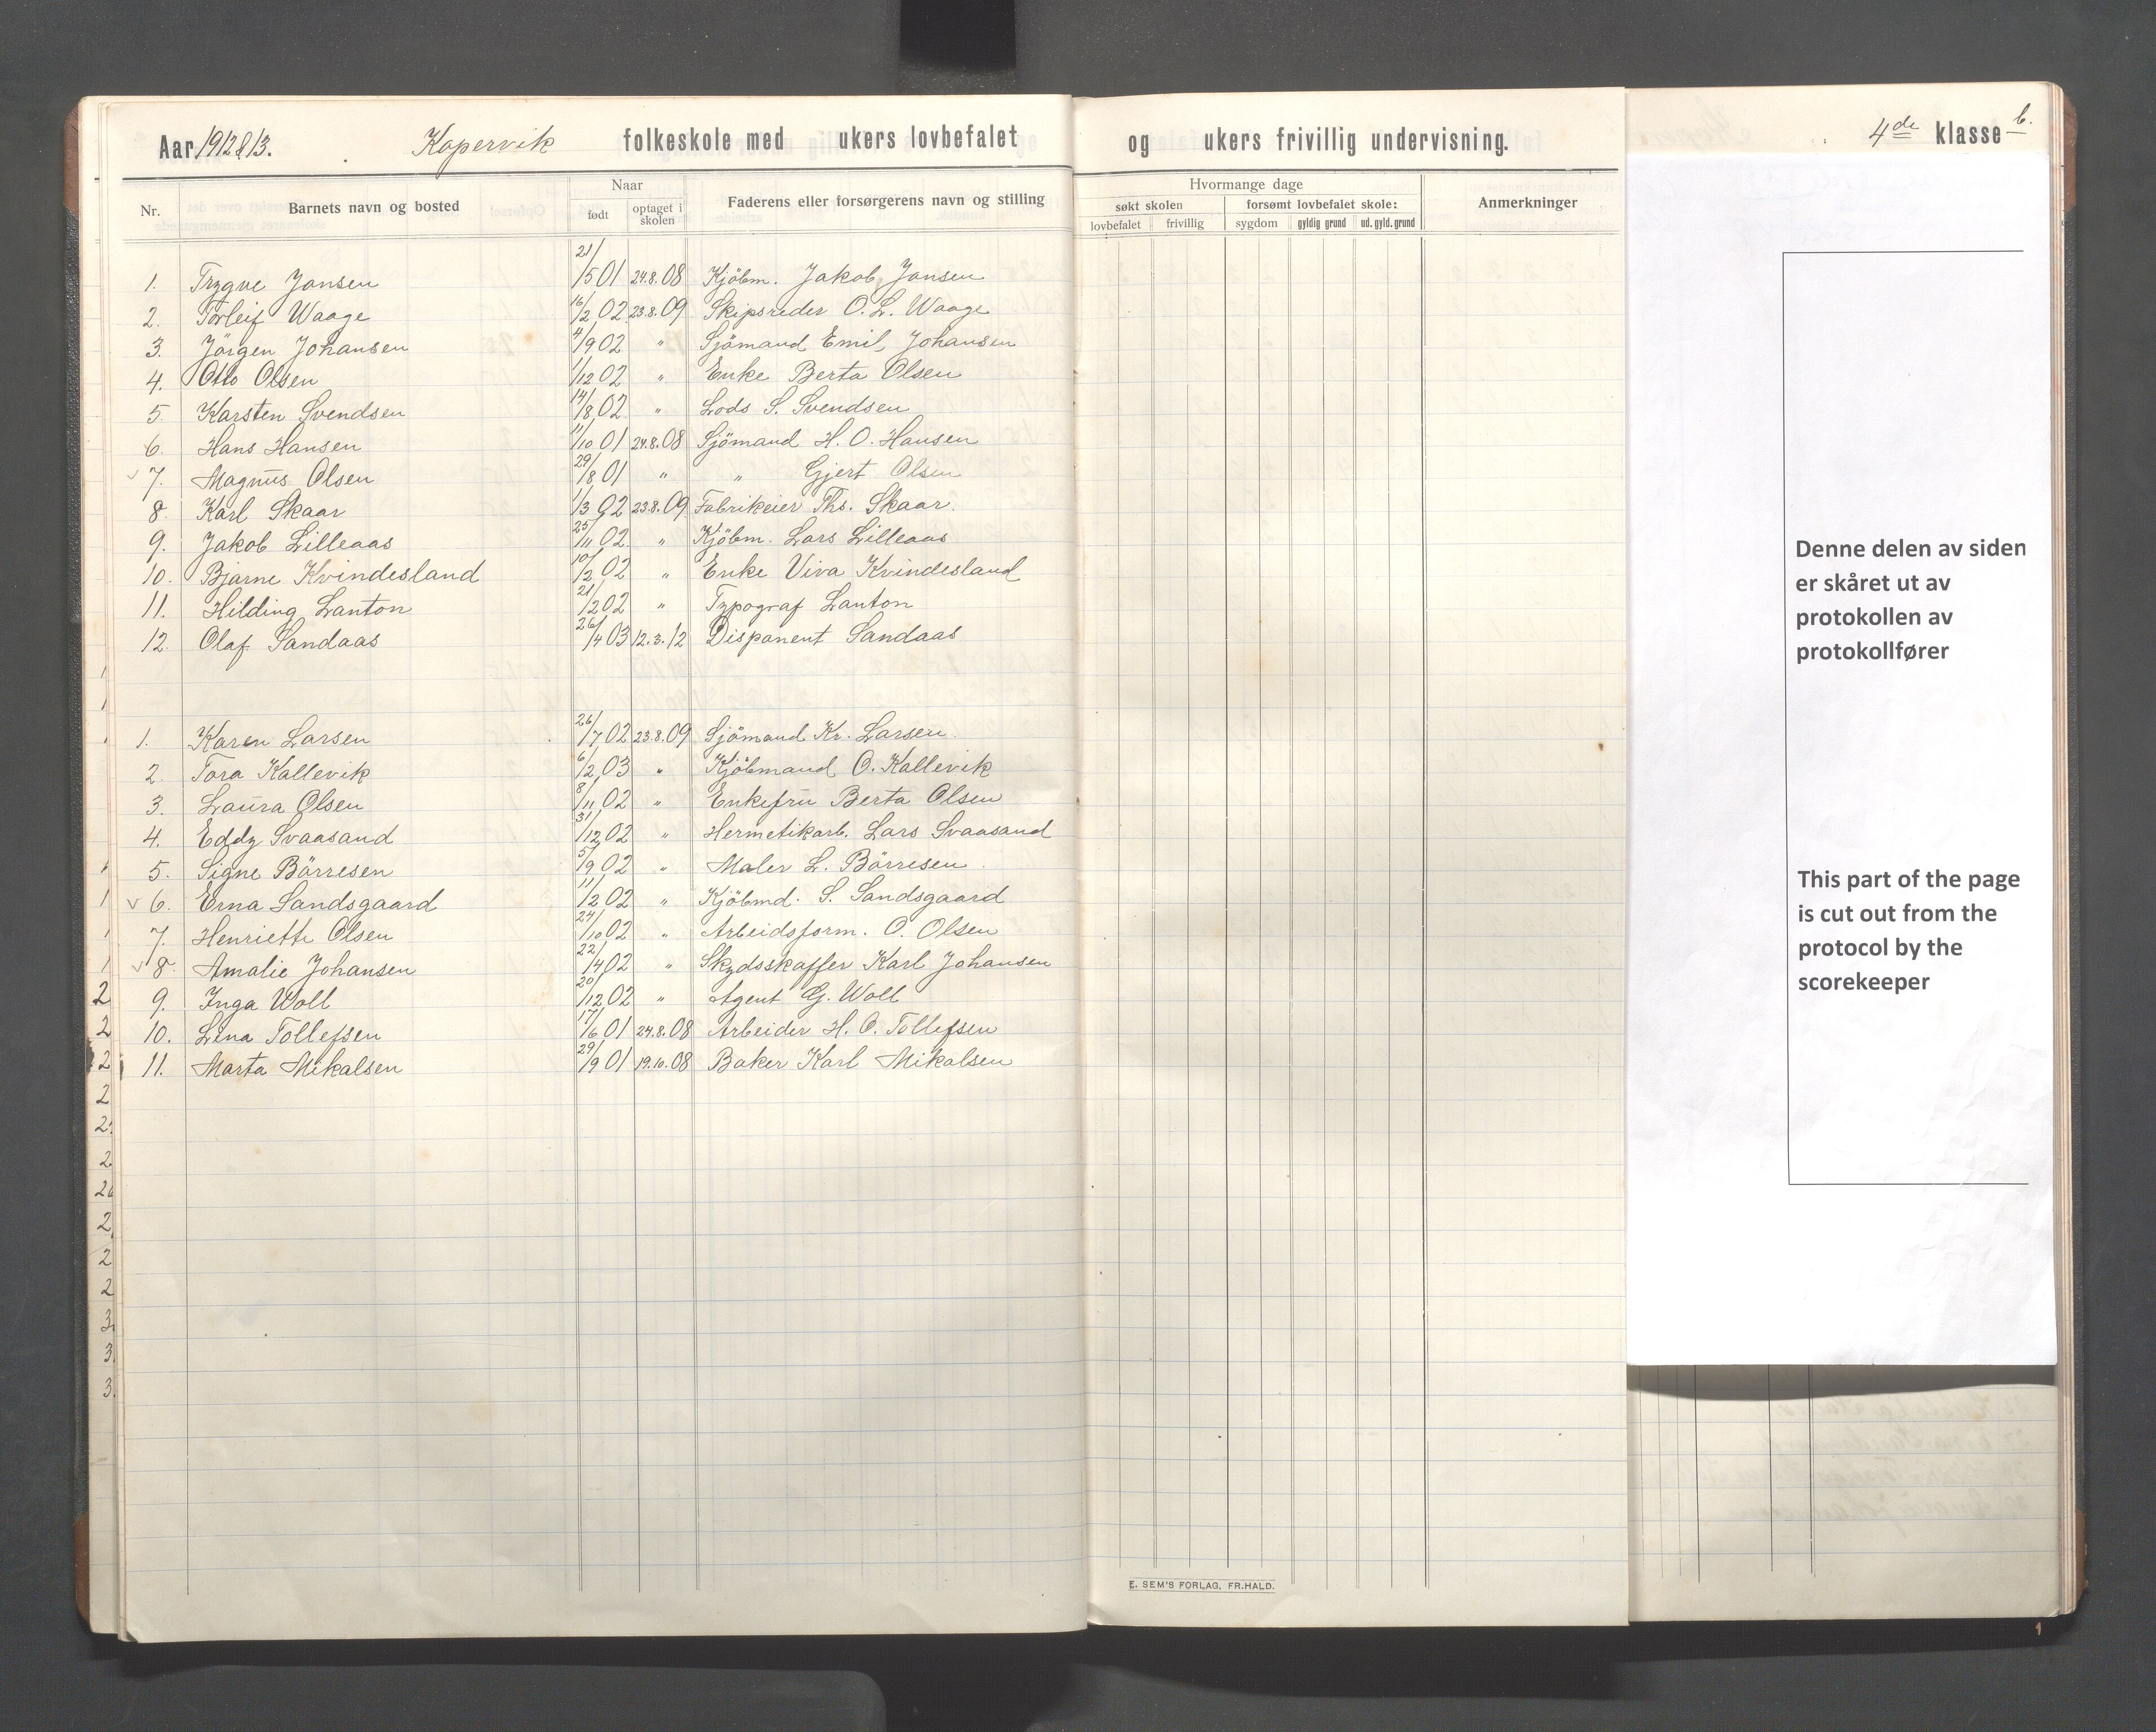 Aar 1912 & 13. Kopervik folkeskole med ukers lovbefalet og ukers frivillig undervisning. 4de klasse b.
Nr. Barnets navn og bosted Naar født optaget i skolen Faderens eller forsørgerens navn og stilling Hvormange dage søkt skolen lovbefalet frivillig forsømt lovbefalet skole: sygdom gyldig grund ud. gyld. grund Anmerkninger
1. Trygve Jansen 21/5 01 24.8.08 Kjöbm. Jakob Jansen
2. Torleif Waage 16/2 02 23.8.09 Skipsreder O. L. Waage
3. Jörgen Johansen 4/9 02 " Sjömand Emil Johansen
4. Otto Olsen 1/12 02 " Enke Berta Olsen
5. Karsten Svendsen 14/8 02 " Lods S. Svendsen
6. Hans Hansen 11/10 01 24.8.08 Sjömand H. O. Hansen
7. Magnus Olsen 29/8 01 " " Gjert Olsen
8. Karl Skaar 1/3 02 23.8.09 Fabrikeier Ths. Skaar.
9. Jakob Lilleaas 25/11 02 " Kjöbm. Lars Lilleaas
10. Bjarne Kvindesland 10/2 02 " Enke Viva Kvindesland
11. Hilding Lanton 21/2 02 " Typograf Lanton
12. Olaf Sandaas 26/4 03 12.3.12 Disponent Sandaas
1. Karen Larsen 26/7 02 23.8.09 Sjömand Kr. Larsen
2. Tora Kallevik 6/2 03 " Kjöbmand O. Kallevik
3. Laura Olsen 8/11 02 " Enkefru Berta Olsen
4. Eddy Svaasand 31/12 02 " Hermetikarb. Lars Svaasand
5. Signe Börresen 5/9 02 " Maler L. Börresen
6. Erna Sandsgaard 11/2 02 " Kjöbmd. S. Sandsgaard
7. Henriette Olsen 24/10 02 " Arbeidsform. O. Olsen
8. Amalie Johansen 22/4 02 " Skydsskaffer Karl Johansen
9. Inga Woll 20/12 02 " Agent G. Woll
10. Lina Tollefsen 17/6 01 24.8.08 Arbeider H. O. Tollefsen
11. Marta Mikalsen 29/9 01 19.10.08 Baker Karl Mikalsen
E. SEM'S FORLAG, FR.HALD.
Denne delen av siden
er skåret ut av
protokollen av
protokollfører
This part of the page
is cut out from the
protocol by the
scorekeeper